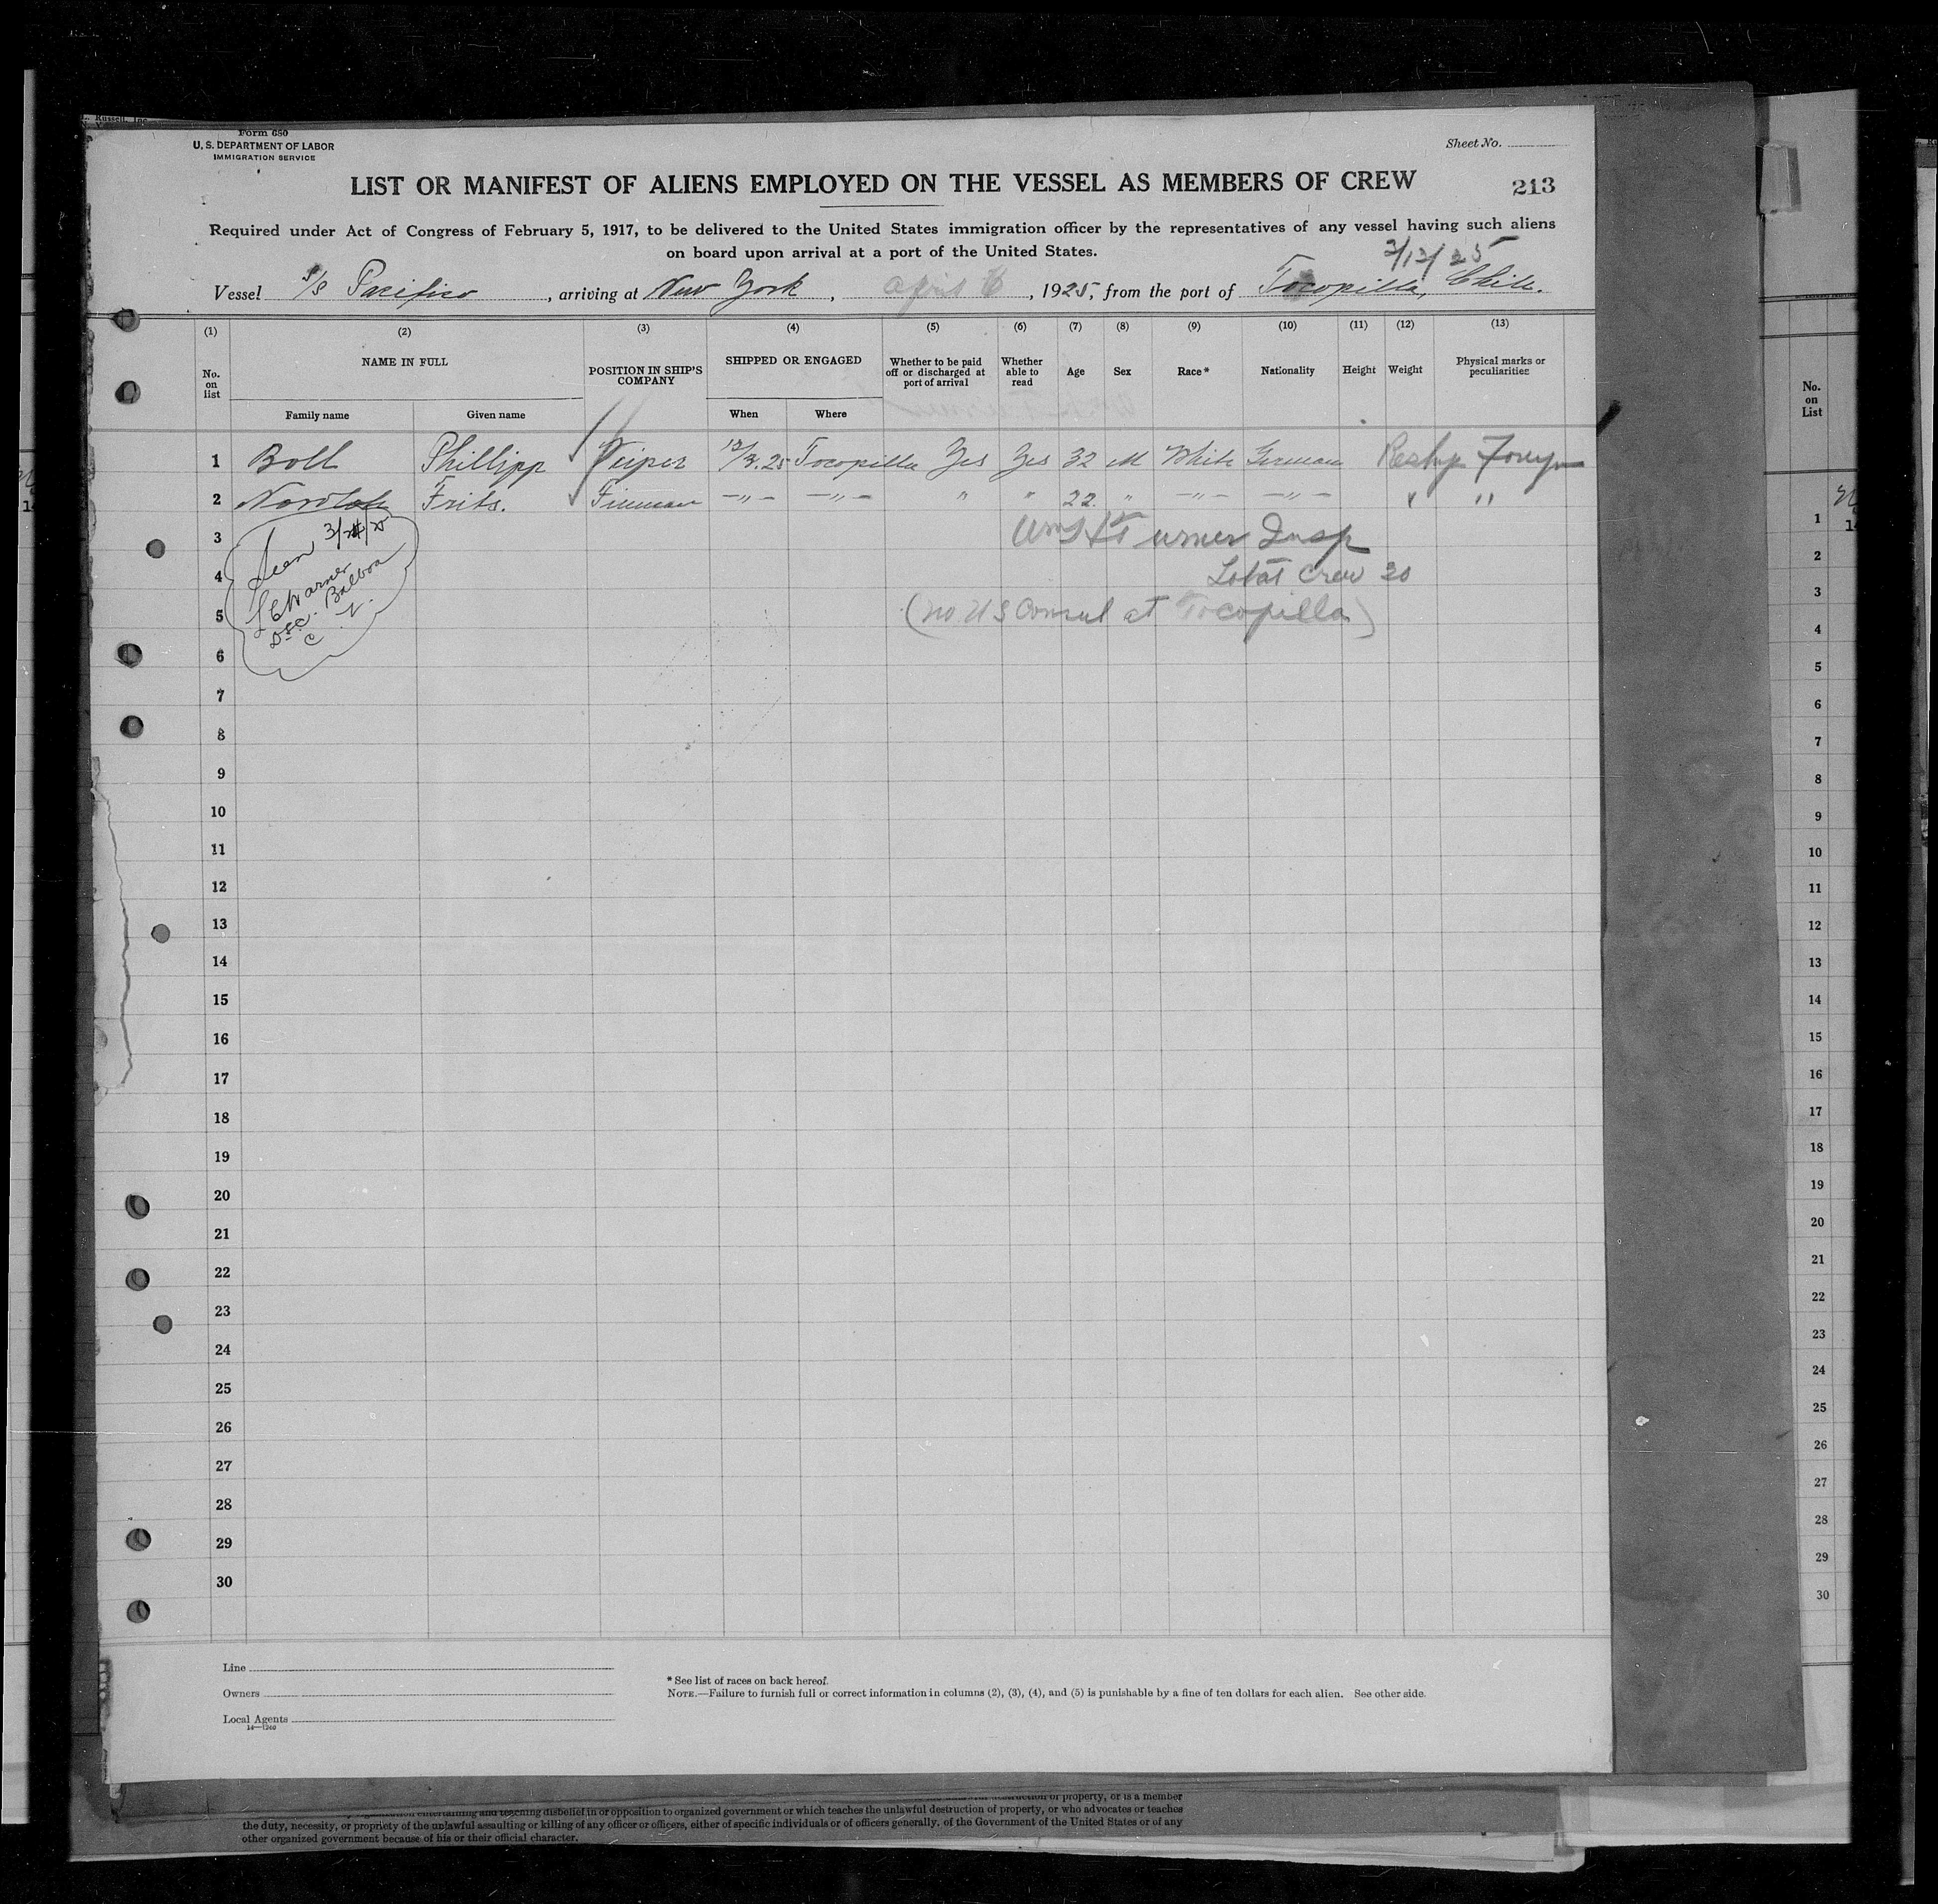 L. Russell, Inc.
Form 680
U. S. DEPARTMENT OF LABOR
IMMIGRATION SERVICE
Sheet No.
LIST OR MANIFEST OF ALIENS EMPLOYED ON THE VESSEL AS MEMBERS OF CREW
213
Required under Act of Congress of February 5, 1917, to be delivered to the United States immigration officer by the representatives of any vessel having such aliens
on board upon arrival at a port of the United States.
3/13/25
Vessel S/S Pacifico, arriving at New York, April 6, 1925, from the port of Tocopilla, Chile.
(1) (2) (3) (4) (5) (6) (7) (8) (9) (10) (11) (12) (13)
No. on list NAME IN FULL POSITION IN SHIP'S COMPANY SHIPPED OR ENGAGED Whether to be paid off or discharged at port of arrival Whether able to read Age Sex Race* Nationality Height Weight Physical marks or peculiarities
Family name Given name When Where
1 Boll Phillipp 12/3.25 Tocopilla Yes Yes 32 M White German Reship Foreign
2 Frits. Fireman —〃— —〃— 〃 〃 22. 〃 —〃— —〃— 〃 〃
3 Turner Insp
4 Total Crew 30
5 (no US Consul at Tocopilla)
Seen
Warner
Balboa
C. Z.
6
7
8
9
10
11
12
13
14
15
16
17
18
19
20
21
22
23
24
25
26
27
28
29
30
Line
Owners
Local Agents
14—1240
* See list of races on back hereof.
NOTE.—Failure to furnish full or correct information in columns (2), (3), (4), and (5) is punishable by a fine of ten dollars for each alien. See other side.
No. on List
1
2
3
4
5
6
7
8
9
10
11
12
13
14
15
16
17
18
19
20
21
22
23
24
25
26
27
28
29
30
entertaining and teaching disbelief in or opposition to organized government or which teaches the unlawful destruction of property, or who advocates or teaches
the duty, necessity, or propriety of the unlawful assaulting or killing of any officer or officers, either of specific individuals or of officers generally, of the Government of the United States or of any
other organized government because of his or their official character.